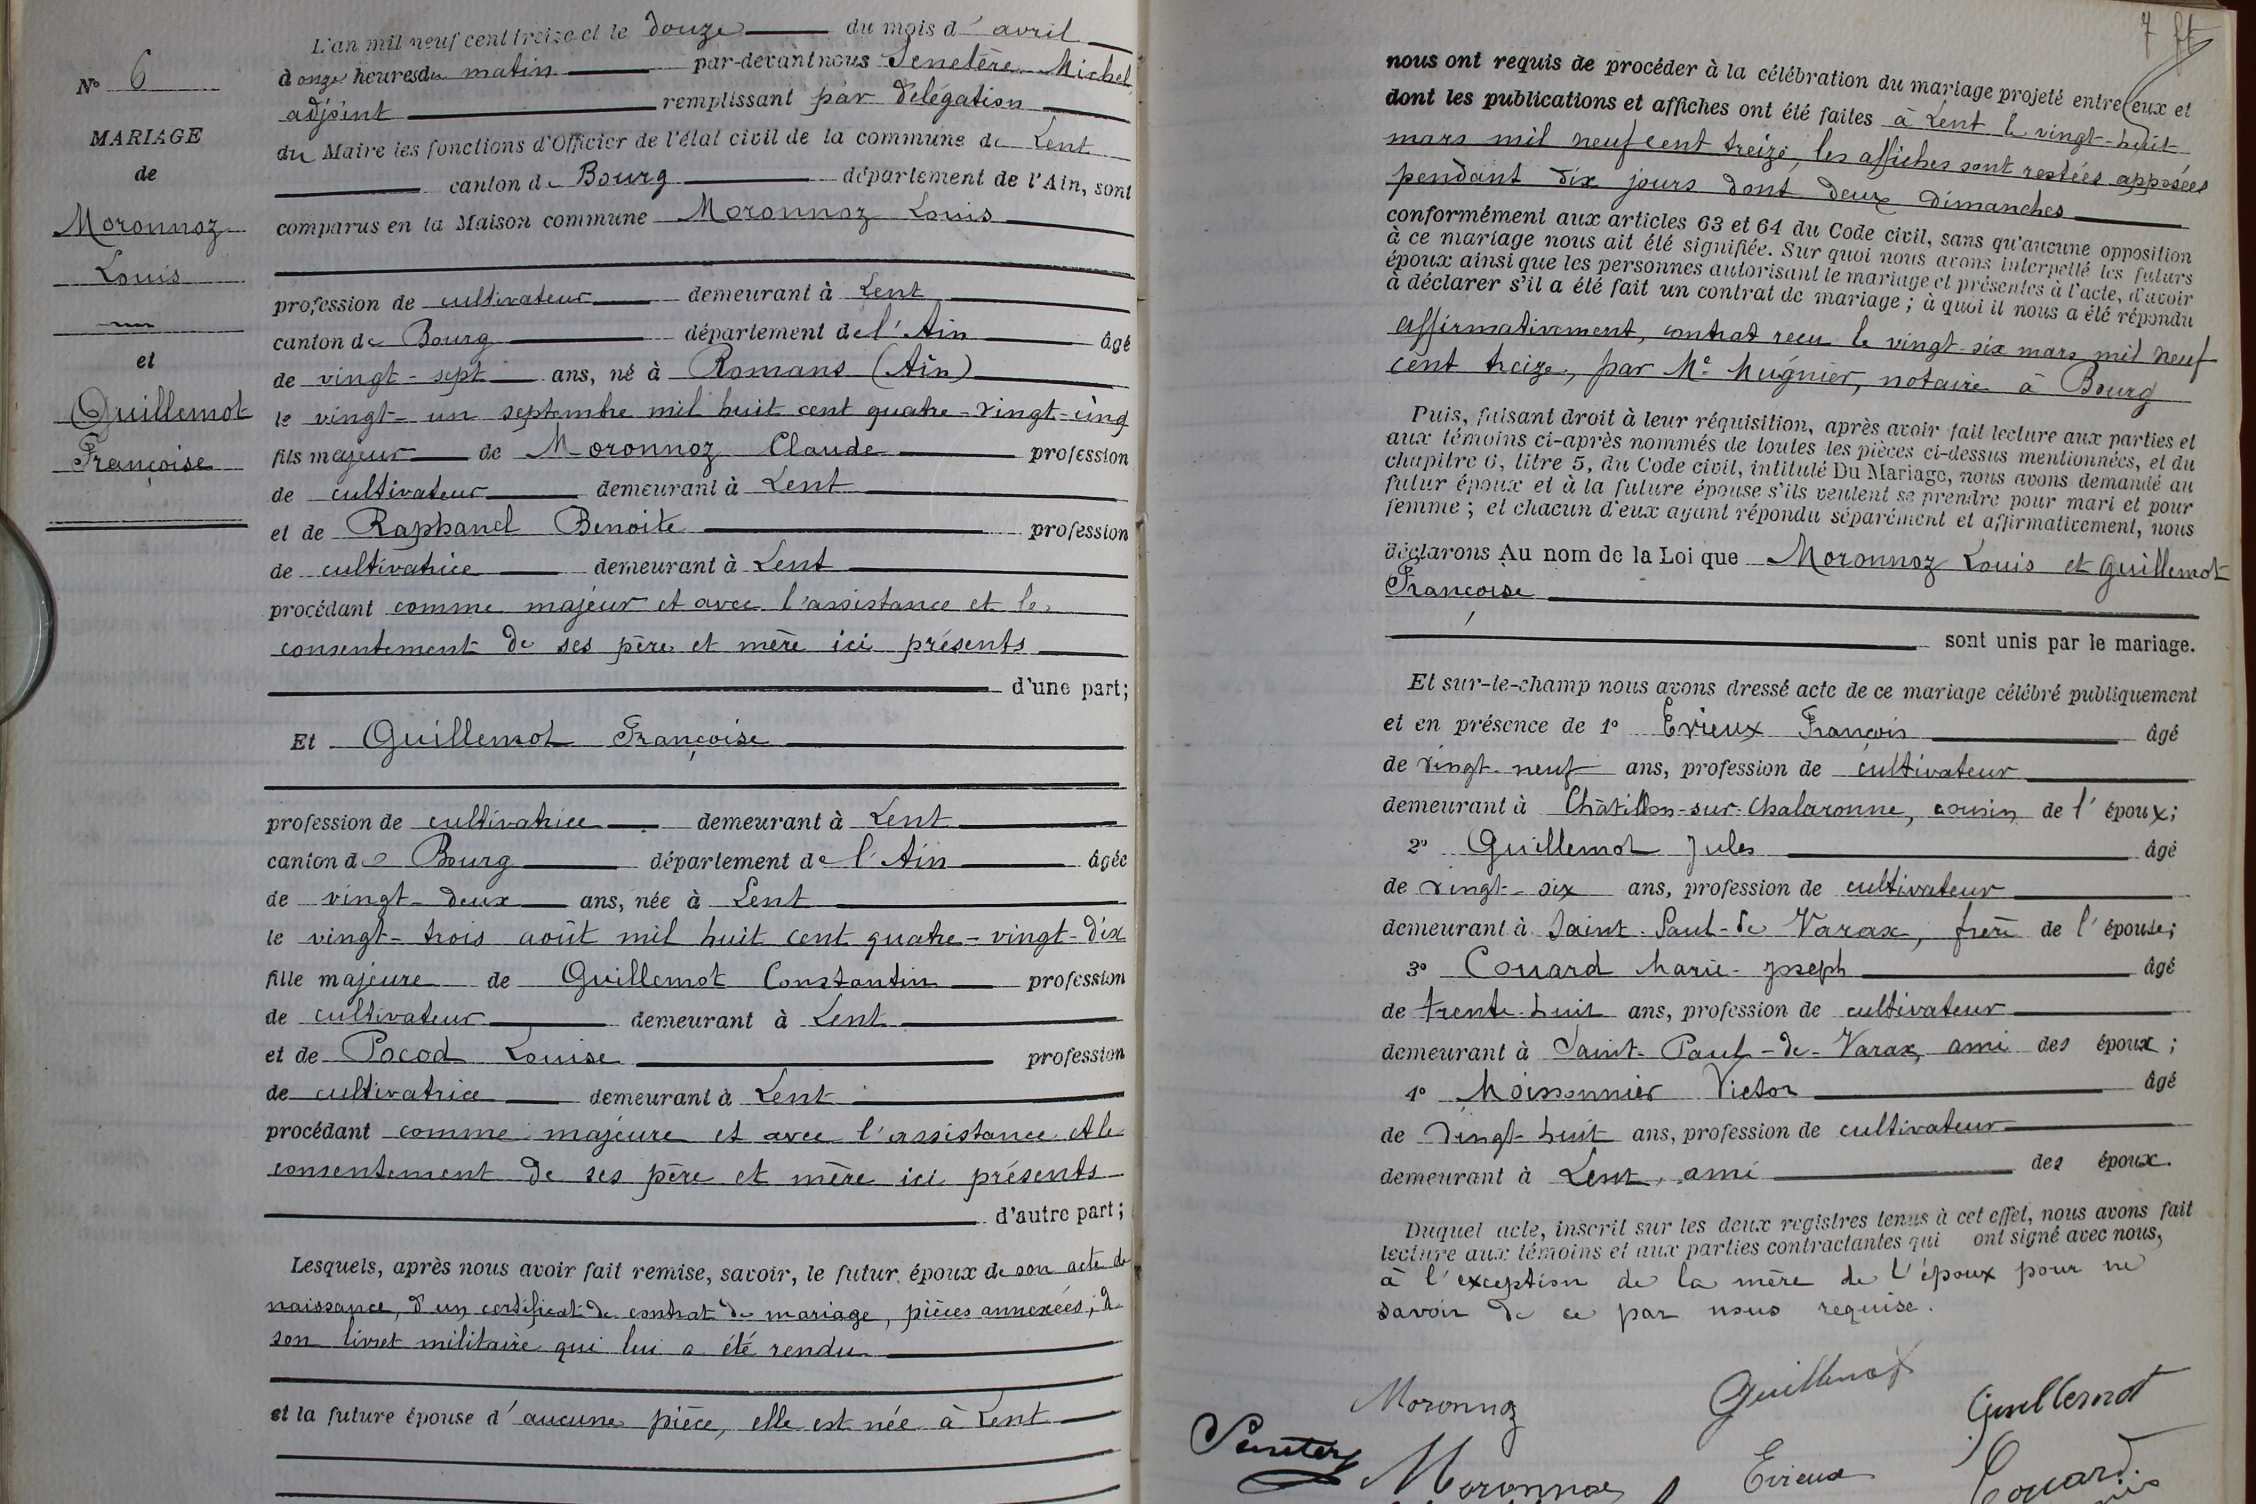 L'an mil neuf cent treize et le douze du mois d'avril
N° 6
à onze heures du matin par-devant nous Senetère Michel,
adjoint remplissant par délégation
MARIAGE
du Maire les fonctions d'Officier de l'état civil de la commune de Lent
de
canton de Bourg département de l'Ain, sont
Moronnoz
comparus en la Maison commune Moronnoz Louis
Louis
profession de cultivateur demeurant à Lent
canton de Bourg département de l'Ain âgé
et
de vingt-sept ans, né à Romans (Ain)
Guillemot
le vingt-un septembre mil huit cent quatre-vingt-cinq
Françoise
fils majeur de Moronnoz Claude profession
de cultivateur demeurant à Lent
et de Raphanel Benoite profession
de cultivatrice demeurant à Lent
procédant comme majeur et avec l'assistance et le
consentement de ses père et mère ici présents
d'une part;
Et Guillemot Françoise
profession de cultivatrice demeurant à Lent
canton de Bourg département de l'Ain âgée
de vingt-deux ans, née à Lent
le vingt-trois août mil huit cent quatre-vingt-dix
fille majeure de Guillemot Constantin profession
de cultivateur demeurant à Lent
et de Pocod Louise profession
de cultivatrice demeurant à Lent
procédant comme majeure et avec l'assistance et le
consentement de ses père et mère ici présents
d'autre part;
Lesquels, après nous avoir fait remise, savoir, le futur époux de son acte de
naissance, d'un certificat de contrat de mariage, pièces annexées, de
son livret militaire qui lui a été rendu
et la future épouse d'aucune pièce, elle est née à Lent
7
nous ont requis de procéder à la célébration du mariage projeté entre eux et
dont les publications et affiches ont été faites à Lent le vingt-huit
mars mil neuf cent treize, les affiches sont restées apposées
pendant dix jours dont deux dimanches
conformément aux articles 63 et 64 du Code civil, sans qu'aucune opposition
à ce mariage nous ait été signifiée. Sur quoi nous avons interpellé les futurs
époux ainsi que les personnes autorisant le mariage et présentes à l'acte, d'avoir
à déclarer s'il a été fait un contrat de mariage ; à quoi il nous a été répondu
affirmativement, contrat reçu le vingt-six mars mil neuf
cent treize, par Me Mugnier, notaire à Bourg
Puis, faisant droit à leur réquisition, après avoir fait lecture aux parties et
aux témoins ci-après nommés de toutes les pièces ci-dessus mentionnées, et du
chapitre 6, titre 5, du Code civil, intitulé Du Mariage, nous avons demandé au
futur époux et à la future épouse s'ils veulent se prendre pour mari et pour
femme ; et chacun d'eux ayant répondu séparément et affirmativement, nous
déclarons Au nom de la Loi que Moronnoz Louis et Guillemot
Françoise
sont unis par le mariage.
Et sur-le-champ nous avons dressé acte de ce mariage célébré publiquement
et en présence de 1° Evieux François âgé
de vingt-neuf ans, profession de cultivateur
demeurant à Châtillon-sur-Chalaronne, cousin de l'époux;
2° Guillemot Jules âgé
de vingt-six ans, profession de cultivateur
demeurant à Saint-Paul-de Varax, frère de l'épouse;
3° Couard Marie-Joseph âgé
de trente-huit ans, profession de cultivateur
demeurant à Saint-Paul-de-Varax, ami des époux ;
4° Moissonnier Victor âgé
de vingt-huit ans, profession de cultivateur
demeurant à Lent, ami des époux.
Duquel acte, inscrit sur les deux registres tenus à cet effet, nous avons fait
lecture aux témoins et aux parties contractantes qui ont signé avec nous,
à l'exception de la mère de l'époux pour ne
savoir de ce par nous requise.
Moronnoz Guillemot Guillemot
Senetère Moronnoz Evieux Couard